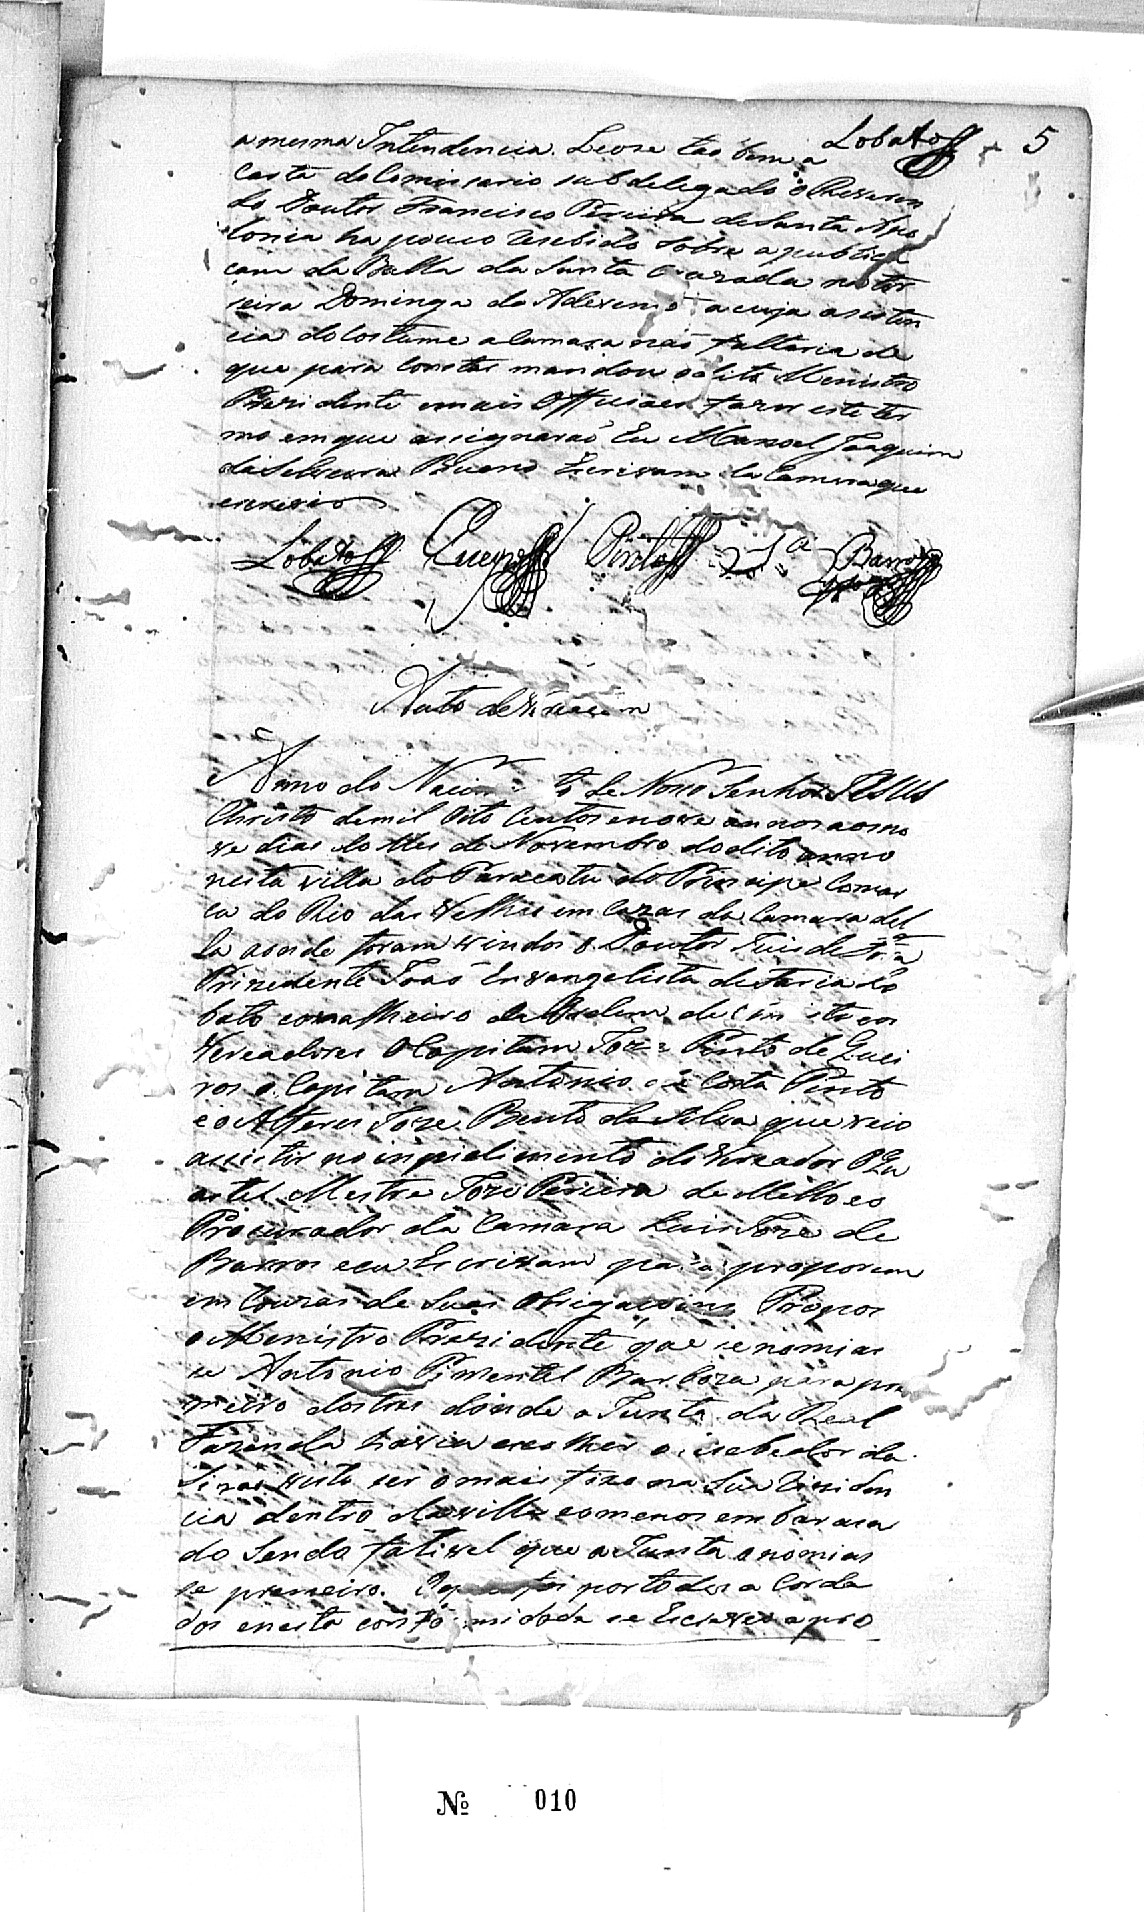 Lobato 5
a mesma Intendencia. Leose tão bem a
Carta do Comissario subdelegado o Reveren
do Doutor Francisco Pereira de Santa Apo
lonia ha pouco recebido sobre a publica
cam da Bulla da Santa Cruzada na ter
seira Dominga do Advento a cuja asisten
cia do Costume a Camara não faltaria de
que para constar mandou o dito Menistro
Prezidente e mais Officiaes fazer este ter
mo em que asignarão Eu Manoel Joaquim
da Silveira Bueno Escrivam da Camera que
escrevio
Lobato Queyros Pinto Sa Barros
Auto de Viriacam
Anno do Nacim to de Nosso Senhor JESUS
Christo de mil oito Centos e nove annos aos no
ve dias do Mes de Novembro do dito anno
nesta villa do Paracatu do Principe Comar
ca do Rio das Velhas em Cazas da Camara del
la aonde foram vindos o Doutor Juis de Fora
Prizedente João Evangelista de Faria Lo
bato comalheiro da Ordem de Cristo os
Vereadores o Capitam Joze Pinto de Quei
ros o Capitam Antonio da Costa Pinto
e o Alferes Joze Bento da Silva que veio
assistir no inpidimento do Vereador o Qu
artel Mestre Joze Pereira de Mello e o
Procurador da Camara Luis Joze de
Barros e eu Escrivam para proporem
em Couzas de Suas Obrigaçoins Propos
o Menistro Prezidente que se nomias
se Antonio Pimentel Barboza para pri
meiro dos tres donde a Junta da Real
Fazenda havia escolher o recebedor da
Sizas visto ser o mais fixo na Sua Reziden
cia dentro da villa e o menos embarasa
do Sendo fativel que a Junta o nomias
se premeiro. O que foi por todos a Corda
dos e nesta conformidade se Escreveo a pro
Nº 010